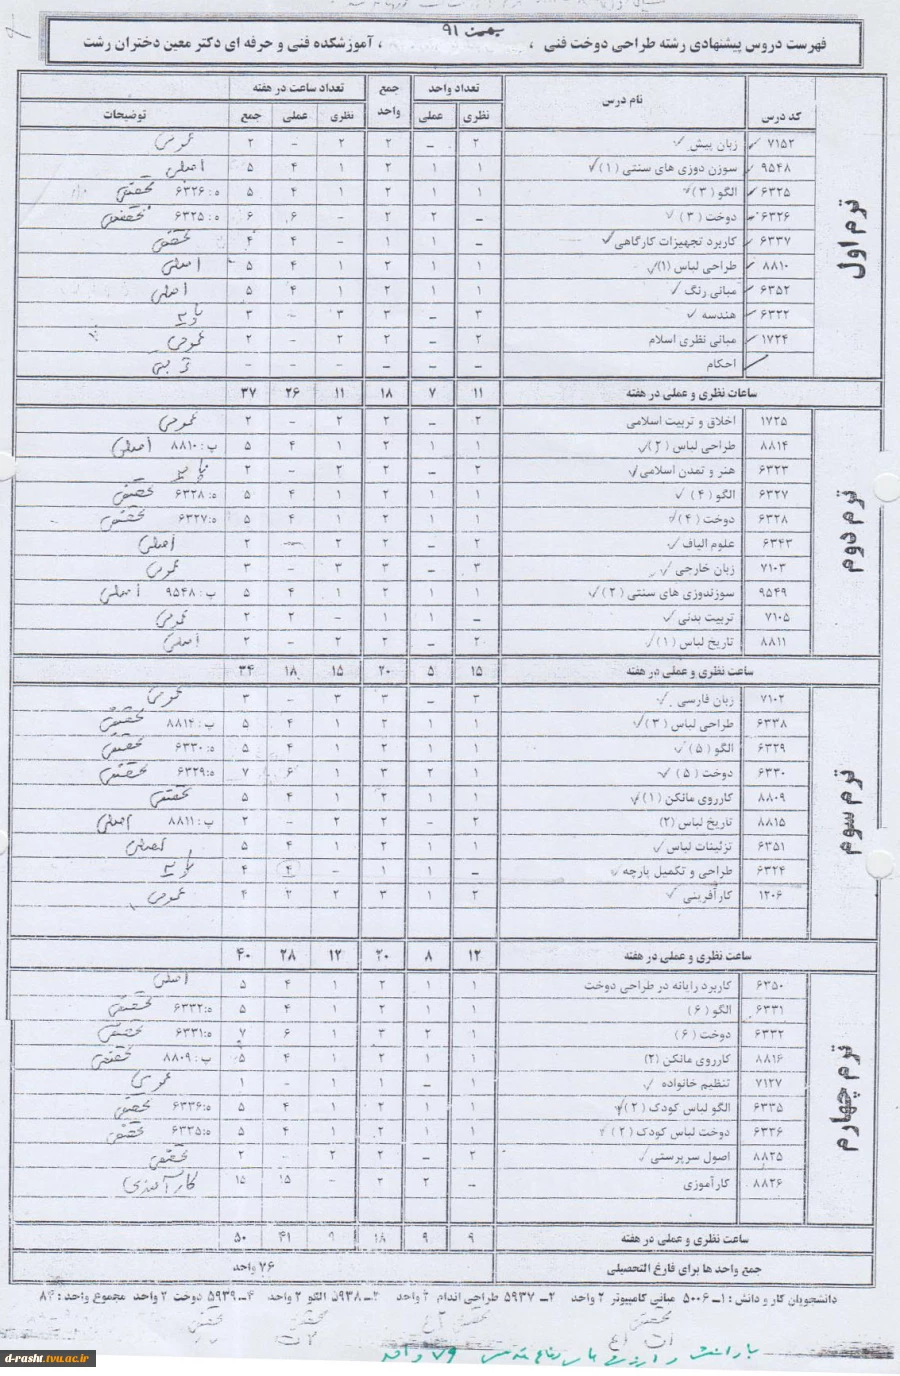 بهمن ۹۱
فهرست دروس پیشنهادی رشته طراحی دوخت فنی ، ، آموزشکده فنی و حرفه ای دکتر معین دختران رشت
کد درس نام درس تعداد واحد جمع واحد تعداد ساعت در هفته توضیحات
نظری عملی نظری عملی جمع
ترم اول
۷۱۵۲ زبان پیش ۲ – ۲ ۲ – ۲ عمومی
۹۵۴۸ سوزن دوزی های سنتی (۱) ۱ ۱ ۲ ۱ ۴ ۵ اصلی
۶۳۲۵ الگو (۳) ۱ ۱ ۲ ۱ ۴ ۵ ه: ۶۳۲۶ تخصصی
۶۳۲۶ دوخت (۳) – ۲ ۲ – ۶ ۶ ه: ۶۳۲۵ تخصصی
۶۳۳۷ کاربرد تجهیزات کارگاهی – ۱ ۱ – ۴ ۴ تخصصی
۸۸۱۰ طراحی لباس (۱) ۱ ۱ ۲ ۱ ۴ ۵ اصلی
۶۳۵۲ مبانی رنگ ۱ ۱ ۲ ۱ ۴ ۵ اصلی
۶۳۲۲ هندسه ۳ – ۳ ۳ – ۳ پایه
۱۷۲۴ مبانی نظری اسلام ۲ – ۲ ۲ – ۲ عمومی
احکام – – – – – – تربیتی
ساعات نظری و عملی در هفته ۱۱ ۷ ۱۸ ۱۱ ۲۶ ۳۷
ترم دوم
۱۷۲۵ اخلاق و تربیت اسلامی ۲ – ۲ ۲ – ۲ عمومی
۸۸۱۴ طراحی لباس (۲) ۱ ۱ ۲ ۱ ۴ ۵ پ: ۸۸۱۰ اصلی
۶۳۲۳ هنر و تمدن اسلامی ۲ – ۲ ۲ – ۲ پایه
۶۳۲۷ الگو (۴) ۱ ۱ ۲ ۱ ۴ ۵ ه: ۶۳۲۸ تخصصی
۶۳۲۸ دوخت (۴) ۱ ۱ ۲ ۱ ۴ ۵ ه: ۶۳۲۷ تخصصی
۶۳۴۳ علوم الیاف ۲ – ۲ ۲ – ۲ اصلی
۷۱۰۳ زبان خارجی ۳ – ۳ ۳ – ۳ عمومی
۹۵۴۹ سوزندوزی های سنتی (۲) ۱ ۱ ۲ ۱ ۴ ۵ پ: ۹۵۴۸ اصلی
۷۱۰۵ تربیت بدنی – ۱ ۱ – ۲ ۲ عمومی
۸۸۱۱ تاریخ لباس (۱) ۲ – ۲ ۲ – ۲ اصلی
ساعت نظری و عملی در هفته ۱۵ ۵ ۲۰ ۱۵ ۱۸ ۳۴
ترم سوم
۷۱۰۲ زبان فارسی ۳ – ۳ ۳ – ۳ عمومی
۶۳۳۸ طراحی لباس (۳) ۱ ۱ ۲ ۱ ۴ ۵ پ: ۸۸۱۴ تخصصی
۶۳۲۹ الگو (۵) ۱ ۱ ۲ ۱ ۴ ۵ ه: ۶۳۳۰ تخصصی
۶۳۳۰ دوخت (۵) ۱ ۲ ۳ ۱ ۶ ۷ ه: ۶۳۲۹ تخصصی
۸۸۰۹ کارروی مانکن (۱) ۱ ۱ ۲ ۱ ۴ ۵ تخصصی
۸۸۱۵ تاریخ لباس (۲) ۲ – ۲ ۲ – ۲ پ: ۸۸۱۱ اصلی
۶۳۵۱ تزئینات لباس ۱ ۱ ۲ ۱ ۴ ۵ اصلی
۶۳۲۴ طراحی و تکمیل پارچه – ۱ ۱ – ۴ ۴ پایه
۱۲۰۶ کارآفرینی ۲ ۱ ۳ ۲ ۲ ۴ عمومی
ساعت نظری و عملی در هفته ۱۲ ۸ ۲۰ ۱۲ ۲۸ ۴۰
ترم چهارم
۶۳۵۰ کاربرد رایانه در طراحی دوخت ۱ ۱ ۲ ۱ ۴ ۵ اصلی
۶۳۳۱ الگو (۶) ۱ ۱ ۲ ۱ ۴ ۵ ه: ۶۳۳۲ تخصصی
۶۳۳۲ دوخت (۶) ۱ ۲ ۳ ۱ ۶ ۷ ه: ۶۳۳۱ تخصصی
۸۸۱۶ کارروی مانکن (۲) ۱ ۱ ۲ ۱ ۴ ۵ پ: ۸۸۰۹ تخصصی
۷۱۲۷ تنظیم خانواده ۱ – ۱ ۱ – ۱ عمومی
۶۳۳۵ الگو لباس کودک (۲) ۱ ۱ ۲ ۱ ۴ ۵ ه: ۶۳۳۶ تخصصی
۶۳۳۶ دوخت لباس کودک (۲) ۱ ۱ ۲ ۱ ۴ ۵ ه: ۶۳۳۵ تخصصی
۸۸۲۵ اصول سرپرستی ۲ – ۲ ۲ – ۲ تخصصی
۸۸۲۶ کارآموزی – ۲ ۲ – ۱۵ ۱۵ کارآموزی
ساعت نظری و عملی در هفته ۹ ۹ ۱۸ ۹ ۴۱ ۵۰
جمع واحد ها برای فارغ التحصیلی ۷۶ واحد
دانشجویان کار و دانش : ۱– ۵۰۰۶ مبانی کامپیوتر ۲ واحد ۲– ۵۹۳۷ طراحی اندام ۲ واحد ۳– ۵۹۳۸ الگو ۲ واحد ۴– ۵۹۳۹ دوخت ۲ واحد مجموع واحد: ۸۴
تخصصی
۷۹ واحد
d-rasht.tvu.ac.ir